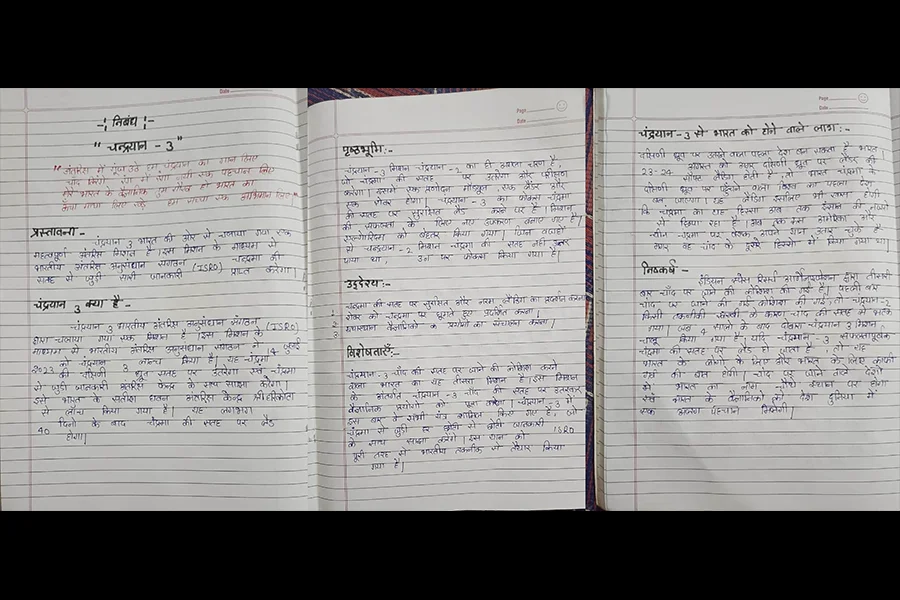 Date
-¦ निबंध ¦-
" चन्द्रयान - 3"
प्रस्तावना :-
चंद्रयान 3 भारत की ओर से चलाया गया एक
महत्वपूर्ण अंतरिक्ष मिशन है। इस मिशन के माध्यम से
भारतीय अंतरिक्ष अनुसंधान संगठन चंद्रमा की
सतह से जुड़ी सारी जानकारी (ISRO) प्राप्त करेगा।
चंद्रयान 3 क्या है -
चंद्रयान 3 भारतीय अंतरिक्ष अनुसंधान संगठन (ISRO)
द्वारा चलाया गया एक मिशन है। इस मिशन के
माध्यम से भारतीय अंतरिक्ष अनुसंधान संगठन ने 14 जुलाई
2023 को चंद्रयान 3 लॉन्च किया है। यह चंद्रमा
की सतह पर उतरेगा एवं चंद्रमा
से जुड़ी जानकारी अंतरिक्ष केन्द्र के साथ साझा करेगा।
इसे भारत के सतीश धवन अंतरिक्ष केन्द्र श्रीहरिकोटा
से लॉन्च किया गया है। यह लगभग
40 दिनों के बाद चंद्रमा की सतह पर लैंड
होगा।
Page
Date
पृष्ठभूमि:-
चंद्रयान-3 मिशन चंद्रयान-2 का ही अगला चरण है,
जो चंद्रमा की सतह पर उतरेगा और परीक्षण
करेगा। इसमें एक प्रणोदन मॉड्यूल, एक लैंडर और
एक रोवर होगा। चंद्रयान-3 का फोकस चंद्रमा
की सतह पर सुरक्षित लैंड करने पर है। मिशन
की सफलता के लिए नए उपकरण बनाए गए हैं।
एल्गोरिदम को बेहतर किया गया। जिन वजहों
से चन्द्रयान-2 मिशन चंद्रमा की सतह नहीं उतर
पाया था, उन पर फोकस किया गया है।
उद्देश्य:-
1 चन्द्रमा की सतह पर सुरक्षित और नरम लैंडिंग का प्रदर्शन करना
2 रोवर को चन्द्रमा पर घूमते हुए प्रदर्शित करना।
3 यथास्थान वैज्ञानिक प्रयोगों का संचालन करना।
विशेषताएँ:-
चन्द्रयान-3 चाँद की सतह पर जाने की कोशिश करने
वाला भारत का यह तीसरा मिशन है। इस मिशन
के अंतर्गत चंद्रयान-3 चाँद की सतह पर उतरकर
वैज्ञानिक प्रयोगों को पूरा करेगा। चंद्रयान-3 में
इस बार वे सभी यंत्र शामिल किए गए हैं, जो
चंद्रमा से जुड़ी हर छोटी से छोटी जानकारी ISRO
के साथ साझा करेंगे। इस यान को
पूरी तरह से भारतीय तकनीक से तैयार किया
गया है।
Page
Date
चंद्रयान-3 से भारत को होने वाले लाभ:-
दक्षिणी ध्रुव पर उतरने वाला पहला देश बन सकता है भारत।
23-24 अगस्त को अगर दक्षिणी ध्रुव पर लैंडर की
सॉफ्ट लैंडिंग होती है, तो भारत चंद्रमा के
दक्षिणी ध्रुव पर पहुँचने वाला विश्व का पहला देश
बन जाएगा। यह लैंडिंग इसलिए भी खास होगी
कि चंद्रमा का यह हिस्सा अब तक इंसान की नजरों
से छिपा रहा है। अब तक रूस अमेरिका और
चीन चंद्रमा पर अपने यान उतार चुके हैं
मगर वह चाँद के दूसरे हिस्सों में किया गया था।
निष्कर्ष -
इंडियन स्पेस रिसर्च ऑर्गेनाइजेशन द्वारा तीसरी
बार चाँद पर जाने की कोशिश की गई है। पहली बार
चाँद पर जाने की गई कोशिश की गई, तो चन्द्रयान-2
किसी तकनीकी खराबी के कारण चाँद की सतह से भटक
गया। अब 4 सालों के बाद दोबारा चंद्रयान 3 मिशन
चालू किया गया है। यदि चंद्रयान-3 सफलतापूर्वक
चंद्रमा की सतह पर लैंड हो जाता है, तो यह
भारत के लोगों के लिए और भारत के लिए काफी
गर्व की बात होगी। चाँद पर जाने वाले देशों
में भारत का नाम चौथे स्थान पर होगा
एवं भारत के वैज्ञानिकों को देश दुनिया में
एक अलग पहचान मिलेगी।